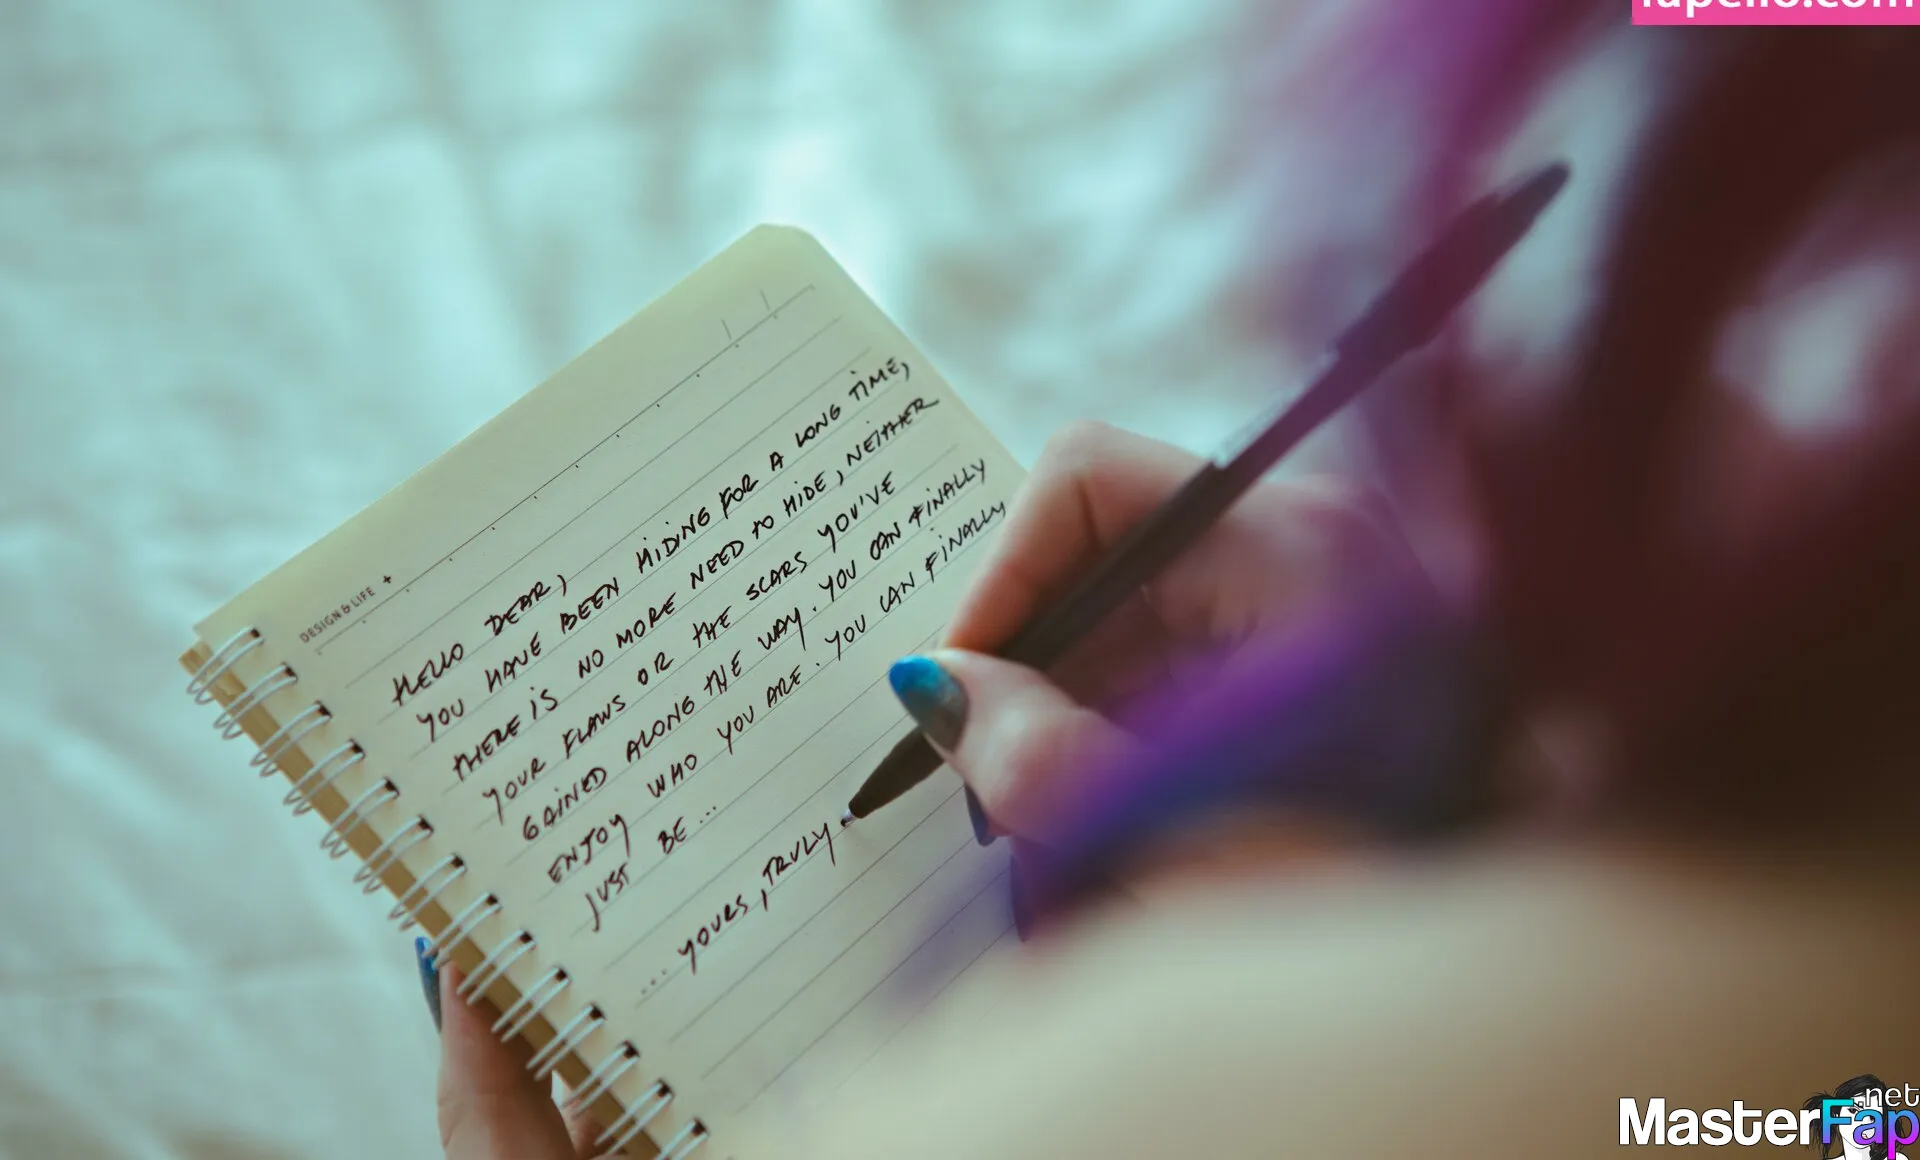 fapello.com
DESIGN & LIFE +
HELLO DEAR,
YOU HAVE BEEN HIDING FOR A LONG TIME,
THERE IS NO MORE NEED TO HIDE, NEITHER
YOUR FLAWS OR THE SCARS YOU'VE
GAINED ALONG THE WAY. YOU CAN FINALLY
ENJOY WHO YOU ARE. YOU CAN FINALLY
JUST BE...
... YOURS, TRULY
MasterFap
.net